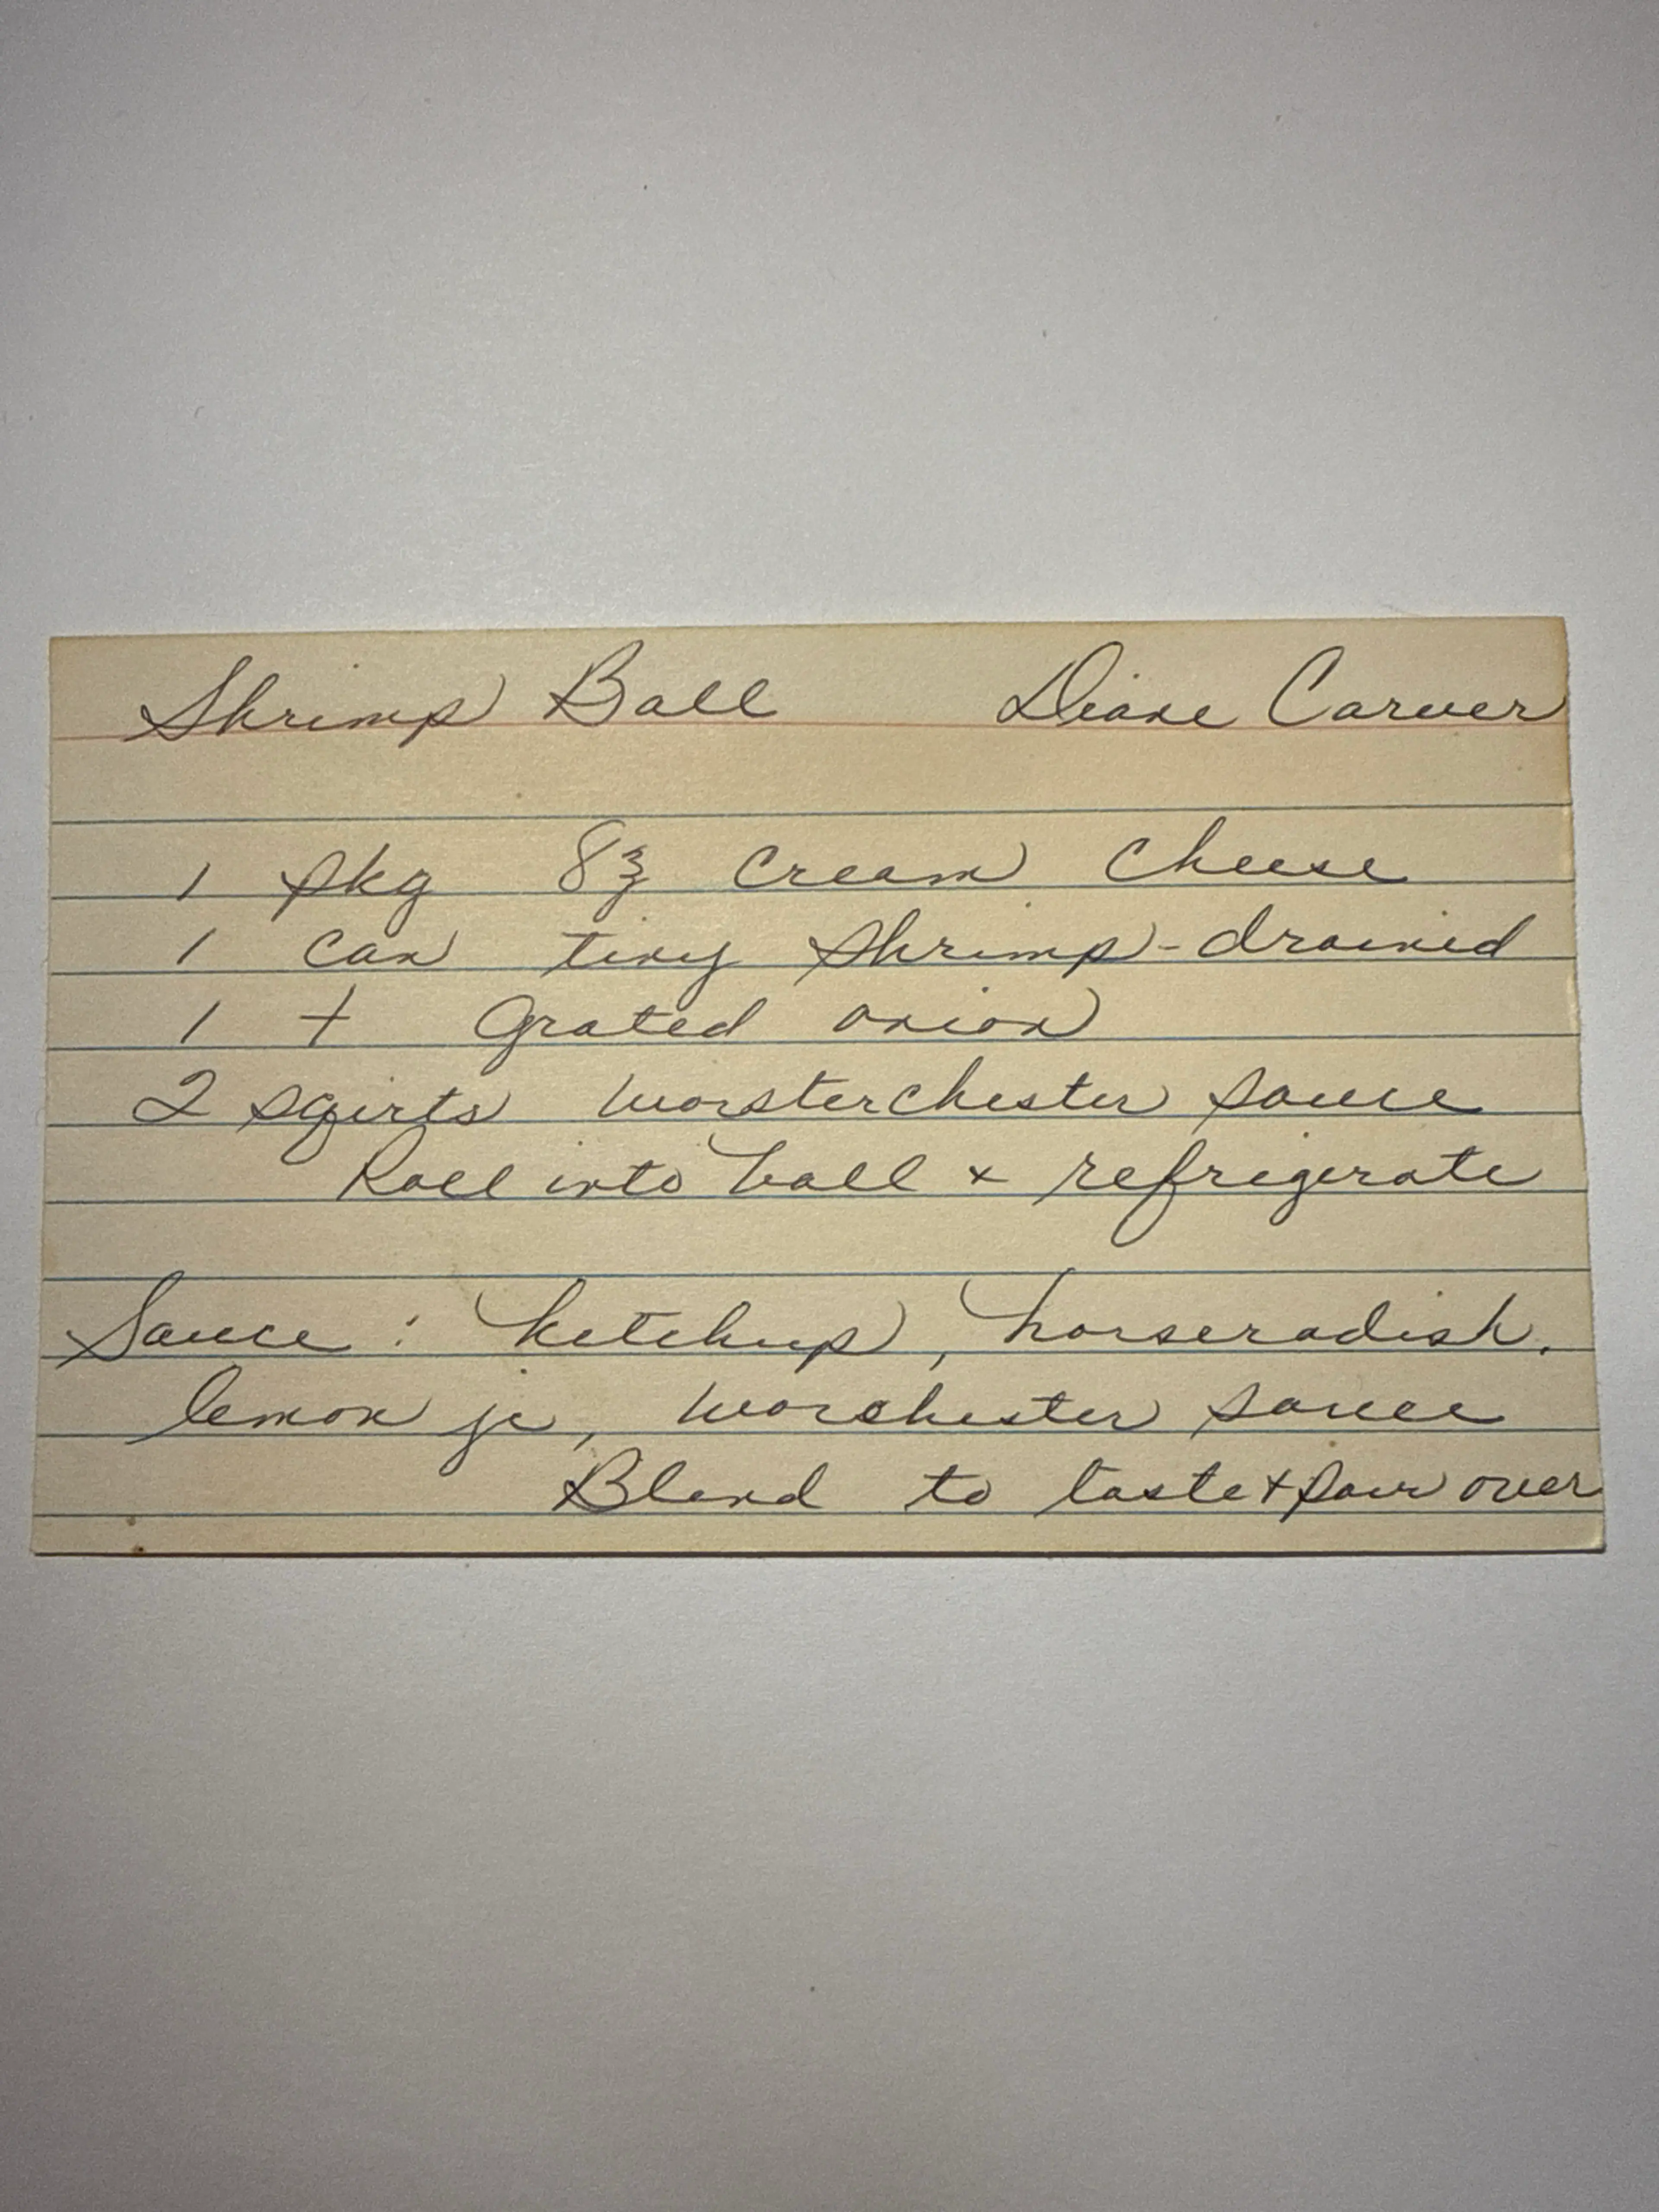 Shrimp Ball Diane Carver
1 pkg 8 ℥ cream cheese
1 can tiny shrimp - drained
1 t grated onion
2 sqirts worsterchester sauce
Roll into ball + refrigerate
Sauce : ketchup, horseradish.
lemon jc, worchester sauce
Blend to taste + pour over